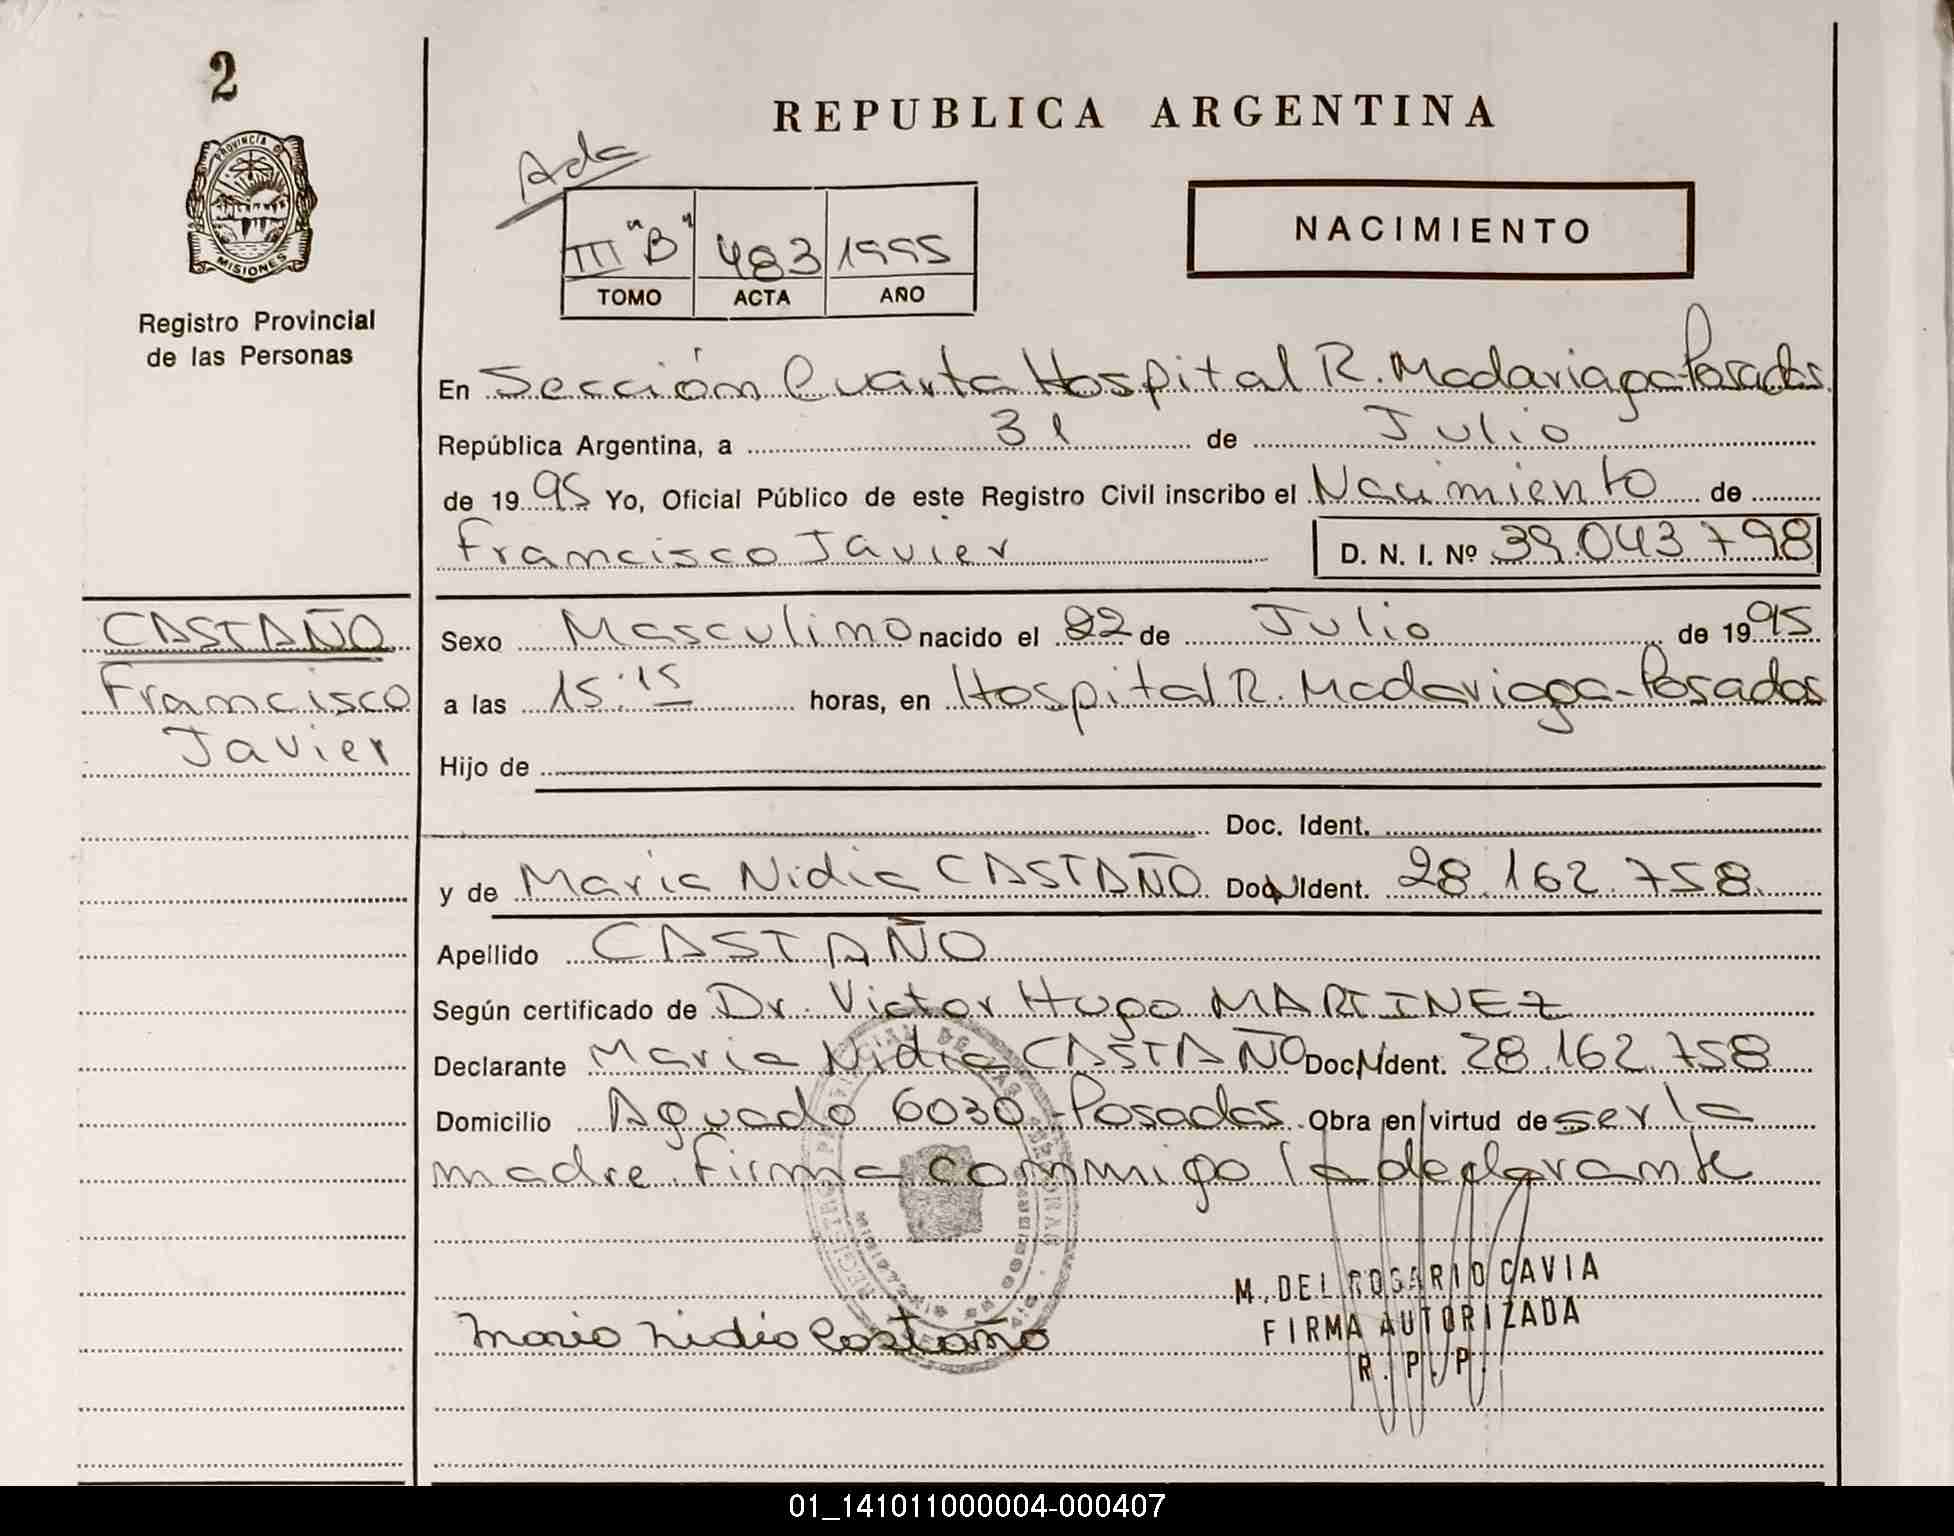 2
REPUBLICA ARGENTINA
PROVINCIA DE
MISIONES
Registro Provincial
de las Personas
III "B" 483 1995
TOMO ACTA AÑO
NACIMIENTO
En Sección Cuarta Hospital R. Madariaga-Posadas
República Argentina, a 31 de Julio
de 1995 Yo, Oficial Público de este Registro Civil inscribo el Nacimiento de
Francisco Javier D. N. I. Nº 39.043.798
CASTAÑO
Francisco
Javier
Sexo Masculino nacido el 22 de Julio de 1995
a las 15:15 horas, en Hospital R. Madariaga-Posadas
Hijo de
Doc. Ident.
y de Maria Nidia CASTAÑO Doc. Ident. 28.162.758
Apellido CASTAÑO
Según certificado de Dr. Victor Hugo MARTINEZ
Declarante Maria Nidia CASTAÑO Doc. Ident. 28.162.758
Domicilio Aguado 6030-Posadas Obra en virtud de ser la
madre. Firma conmigo la declarante
M. DEL ROSARIO CAVIA
FIRMA AUTORIZADA
R. P. P.
Maria Nidia Castaño
01_141011000004-000407